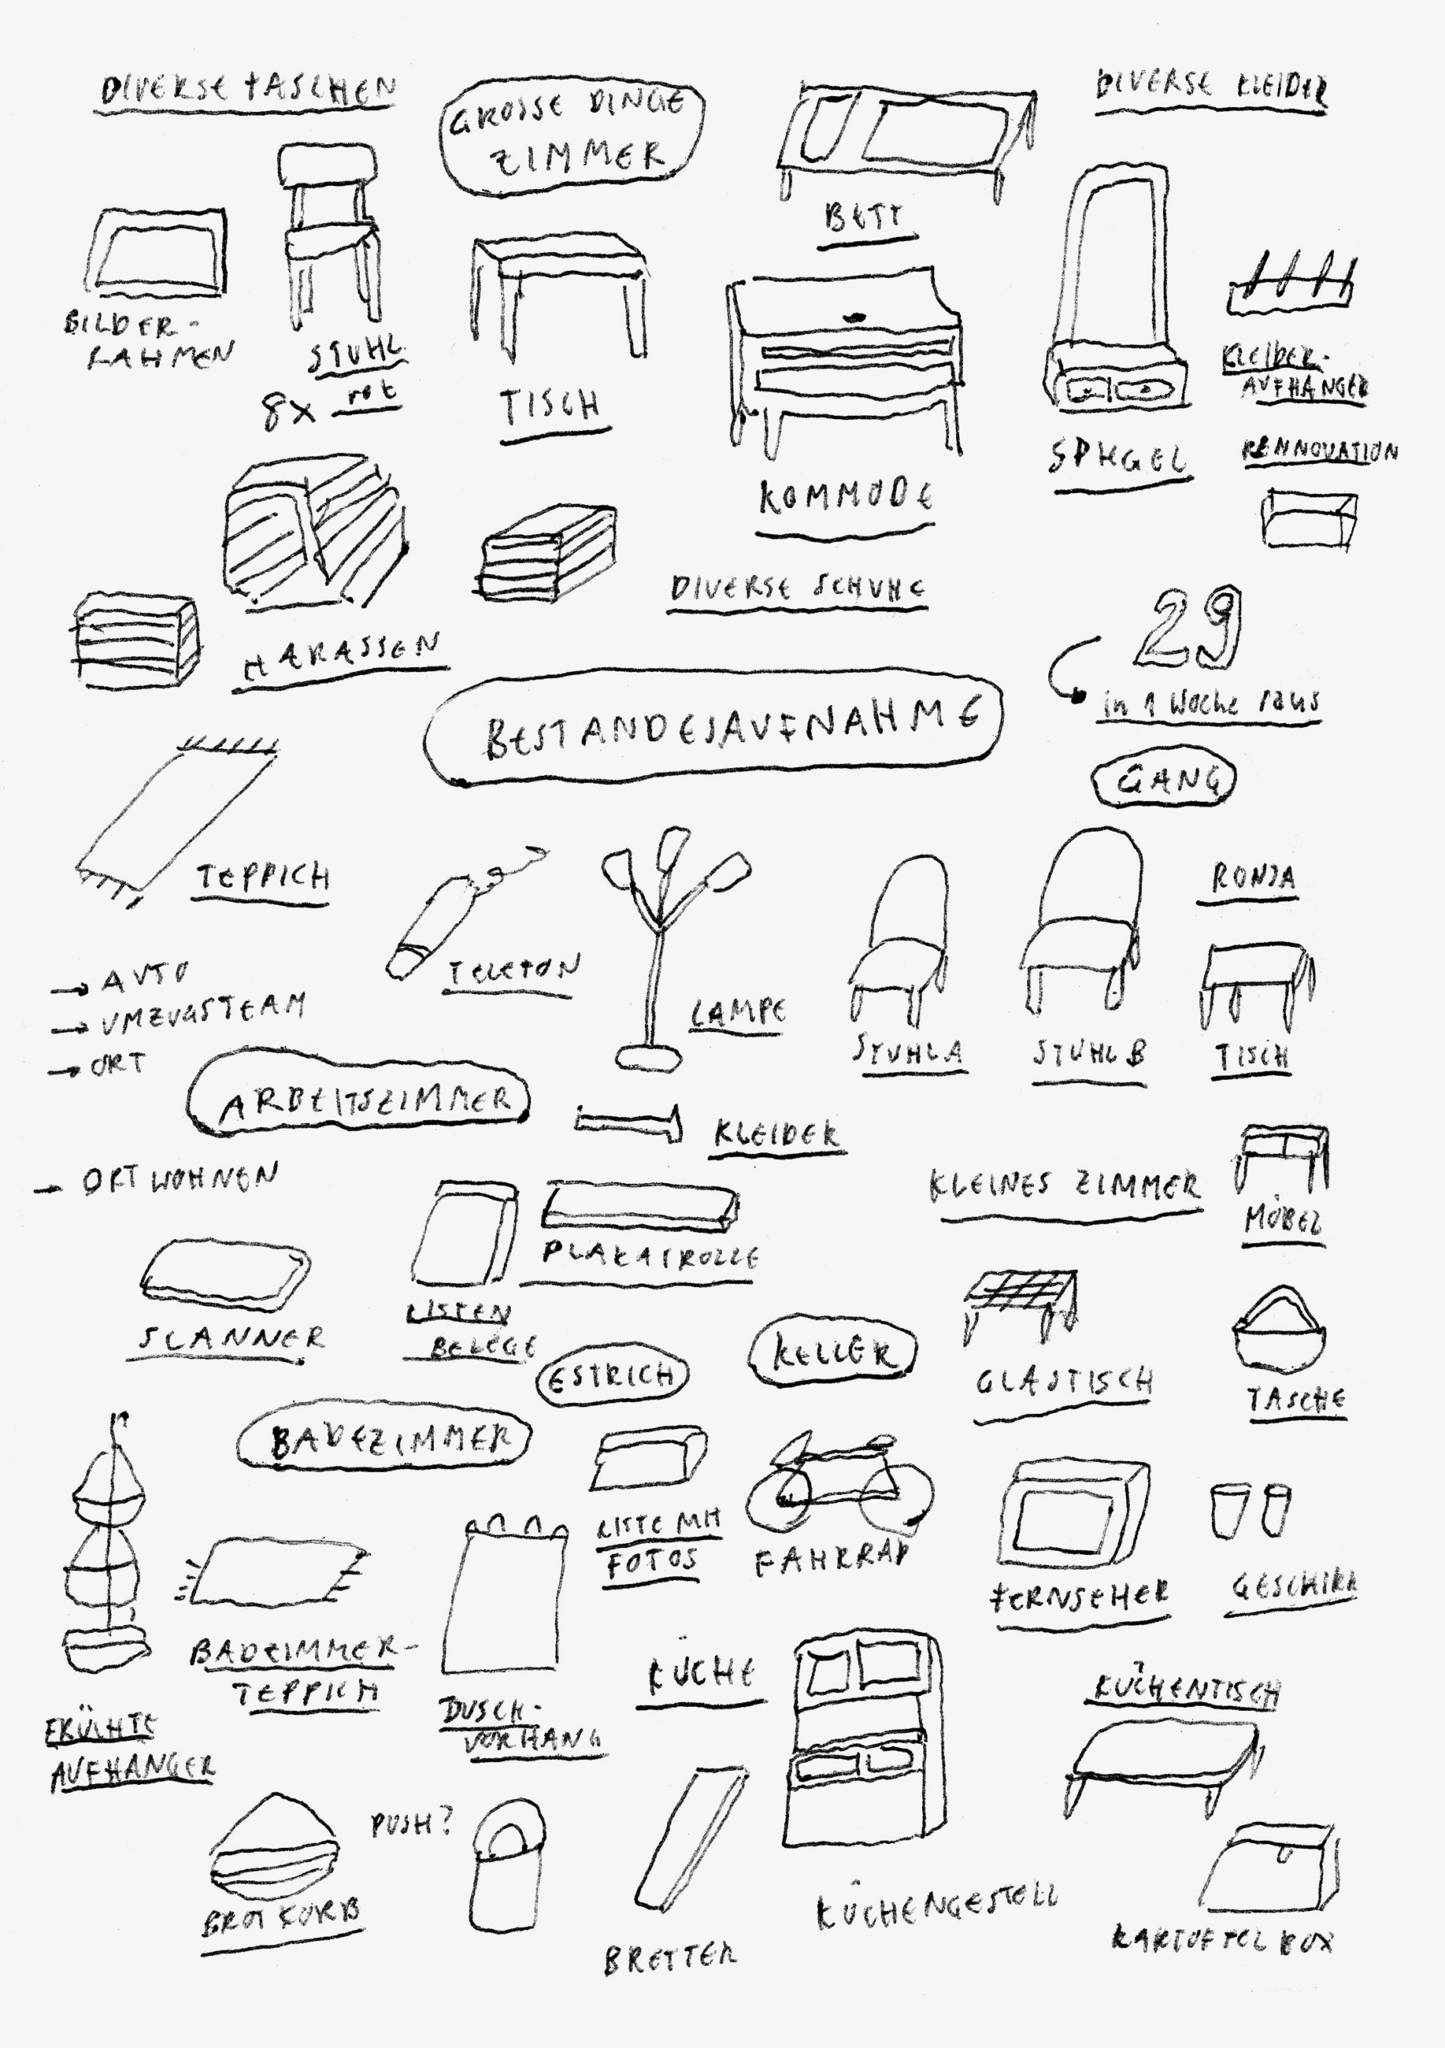 DIVERSE TASCHEN
GROSSE DINGE
ZIMMER
DIVERSE KLEIDER
BETT
BILDER-
RAHMEN
STUHL
8x rot
TISCH
KOMMODE
SPIEGEL
KLEIDER-
AUFHÄNGER
RENNOVATION
HARASSEN
DIVERSE SCHUHE
29
in 1 Woche raus
BESTANDESAUFNAHME
GANG
TEPPICH
TELEFON
LAMPE
STUHL A
STUHL B
RONJA
TISCH
→ AUTO
→ UMZUGSTEAM
→ ORT
ARBEITSZIMMER
KLEIDER
→ ORT WOHNEN
KLEINES ZIMMER
MÖBEL
SCANNER
KISTEN
BELEGE
PLAKATROLLE
ESTRICH
KELLER
GLASTISCH
TASCHE
BADEZIMMER
KISTE MIT
FOTOS
FAHRRAD
FERNSEHER
GESCHIRR
FRÜHTE
AUFHÄNGER
BADZIMMER-
TEPPICH
DUSCH-
VORHANG
KÜCHE
KÜCHENTISCH
BROTKORB
PUSH?
BRETTER
KÜCHENGESTELL
KARTOFFEL BOX